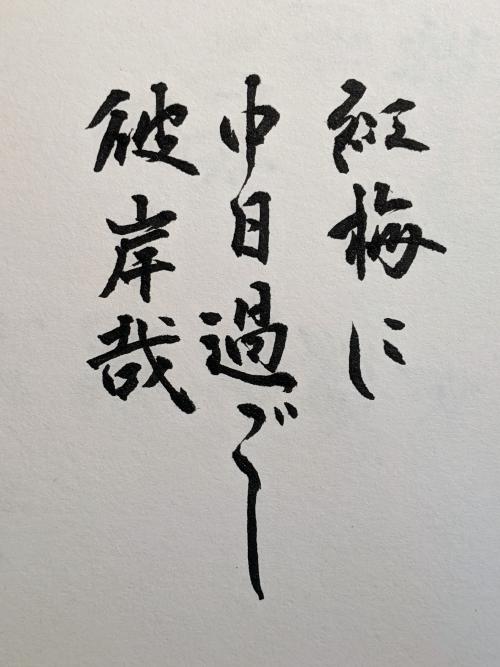 紅梅に
中日過ぐし
彼岸哉